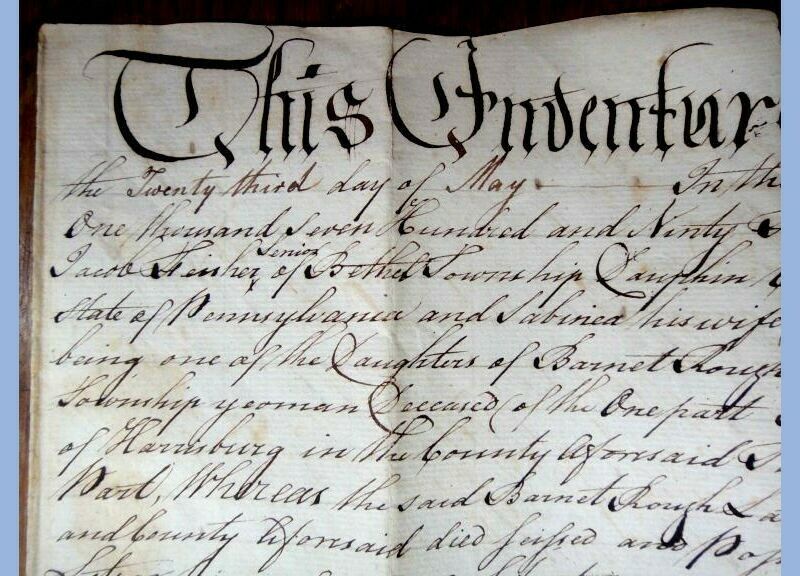 This Indentur
the Twenty third day of May In th
One thousand Seven Hundred and Ninty
Senior
Jacob of Bethel Township Dauphin
State of Pennsylvania and Sabinea his wife
being one of the Daughters of Barnet Rough
Township yeoman Deceased of the One part
of Harrisburg in the County Aforesaid
Part, Whereas the said Barnet Rough La
and County Aforesaid died seissed and Pos